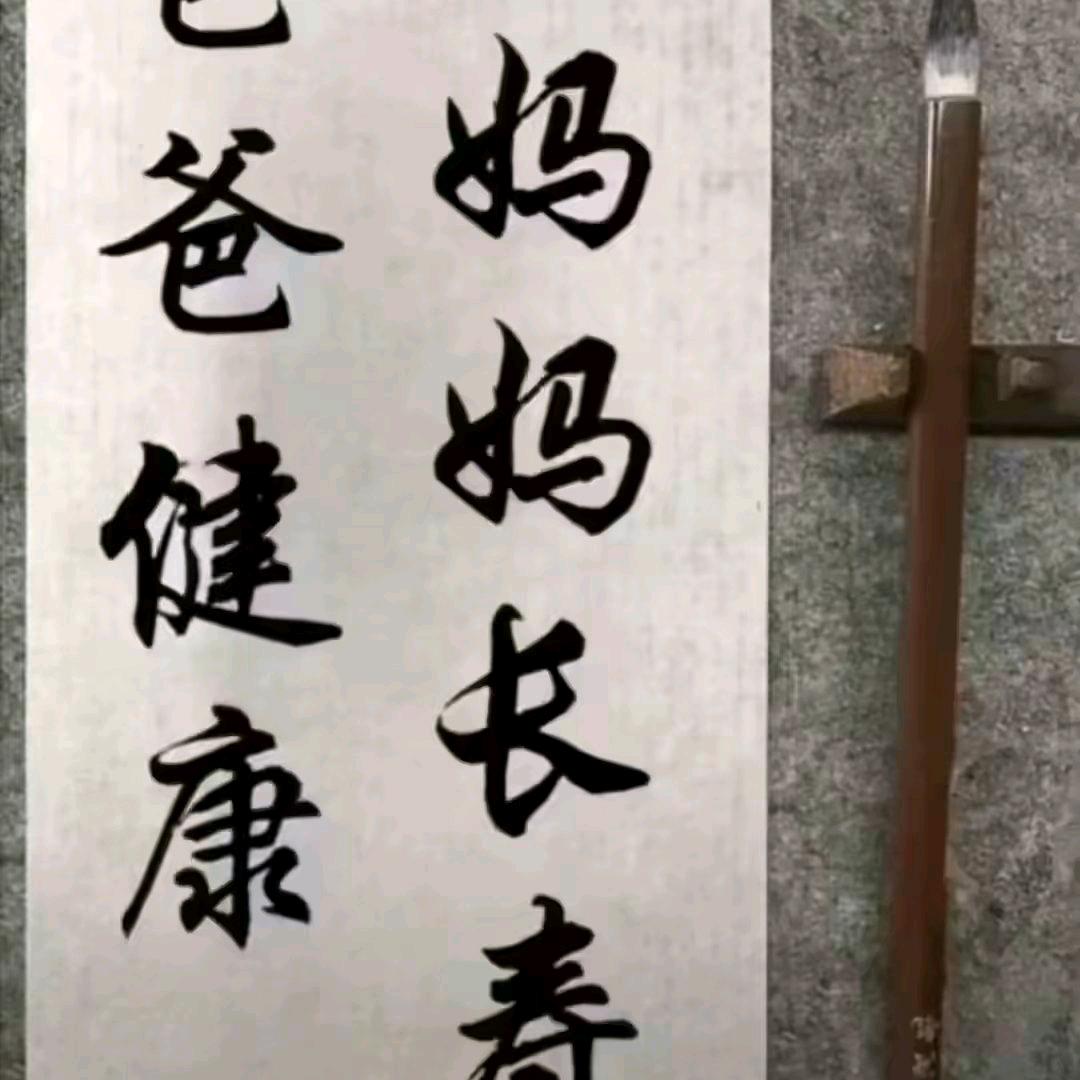 妈妈长寿
爸爸健康